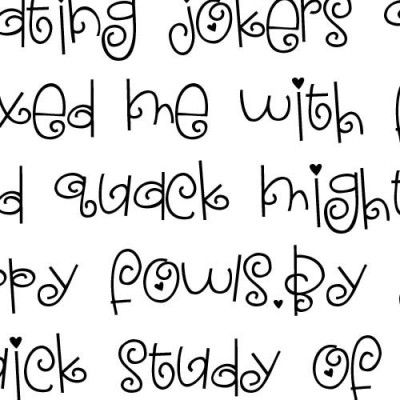 ating jokers
xed me with f
d quack might
ppy fowls.By
ick study of